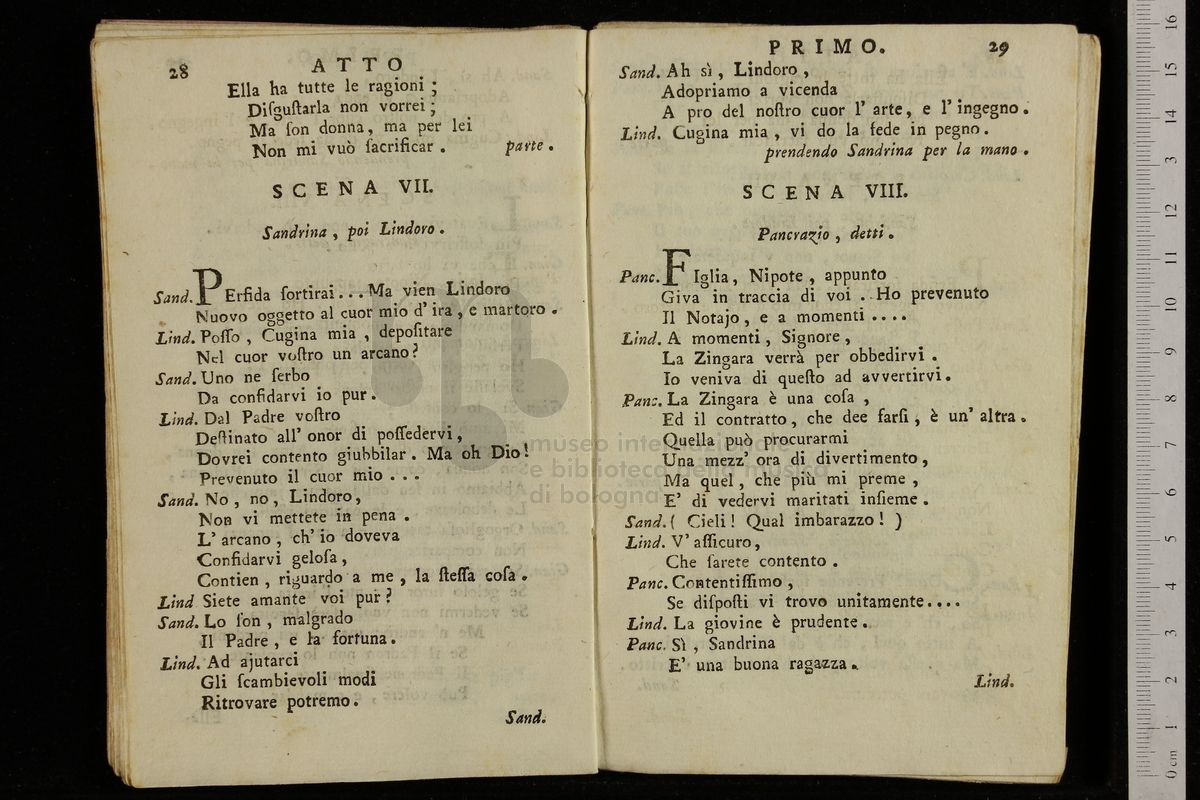 28
ATTO
Ella ha tutte le ragioni;
Diſguſtarla non vorrei;
Ma ſon donna, ma per lei
Non mi vuò ſacrificar. parte.
SCENA VII.
Sandrina, poi Lindoro.
Sand. PErfida ſortirai... Ma vien Lindoro
Nuovo oggetto al cuor mio d' ira, e martoro.
Lind. Poſſo, Cugina mia, depoſitare
Nel cuor voſtro un arcano?
Sand. Uno ne ſerbo
Da confidarvi io pur.
Lind. Dal Padre voſtro
Deſtinato all' onor di poſſedervi,
Dovrei contento giubbilar. Ma oh Dio!
Prevenuto il cuor mio...
Sand. No, no, Lindoro,
Non vi mettete in pena.
L' arcano, ch' io doveva
Confidarvi geloſa,
Contien, riguardo a me, la ſteſſa coſa.
Lind Siete amante voi pur?
Sand. Lo ſon, malgrado
Il Padre, e la fortuna.
Lind. Ad ajutarci
Gli ſcambievoli modi
Ritrovare potremo.
Sand.
PRIMO.
29
Sand. Ah sì, Lindoro,
Adopriamo a vicenda
A pro del noſtro cuor l' arte, e l' ingegno.
Lind. Cugina mia, vi do la fede in pegno.
prendendo Sandrina per la mano.
SCENA VIII.
Pancrazio, detti.
Panc. FIglia, Nipote, appunto
Giva in traccia di voi.. Ho prevenuto
Il Notajo, e a momenti....
Lind. A momenti, Signore,
La Zingara verrà per obbedirvi.
Io veniva di queſto ad avvertirvi.
Panc. La Zingara è una coſa,
Ed il contratto, che dee farſi, è un' altra.
Quella può procurarmi
Una mezz' ora di divertimento,
Ma quel, che più mi preme,
E' di vedervi maritati inſieme.
Sand. ( Cieli! Qual imbarazzo! )
Lind. V' aſſicuro,
Che ſarete contento.
Panc. Contentiſſimo,
Se diſpoſti vi trovo unitamente....
Lind. La giovine è prudente.
Panc. Sì, Sandrina
E' una buona ragazza.
Lind.
museo internazionale
e biblioteca della musica
di bologna
0 cm 1 2 3 4 5 6 7 8 9 10 11 12 13 14 15 16